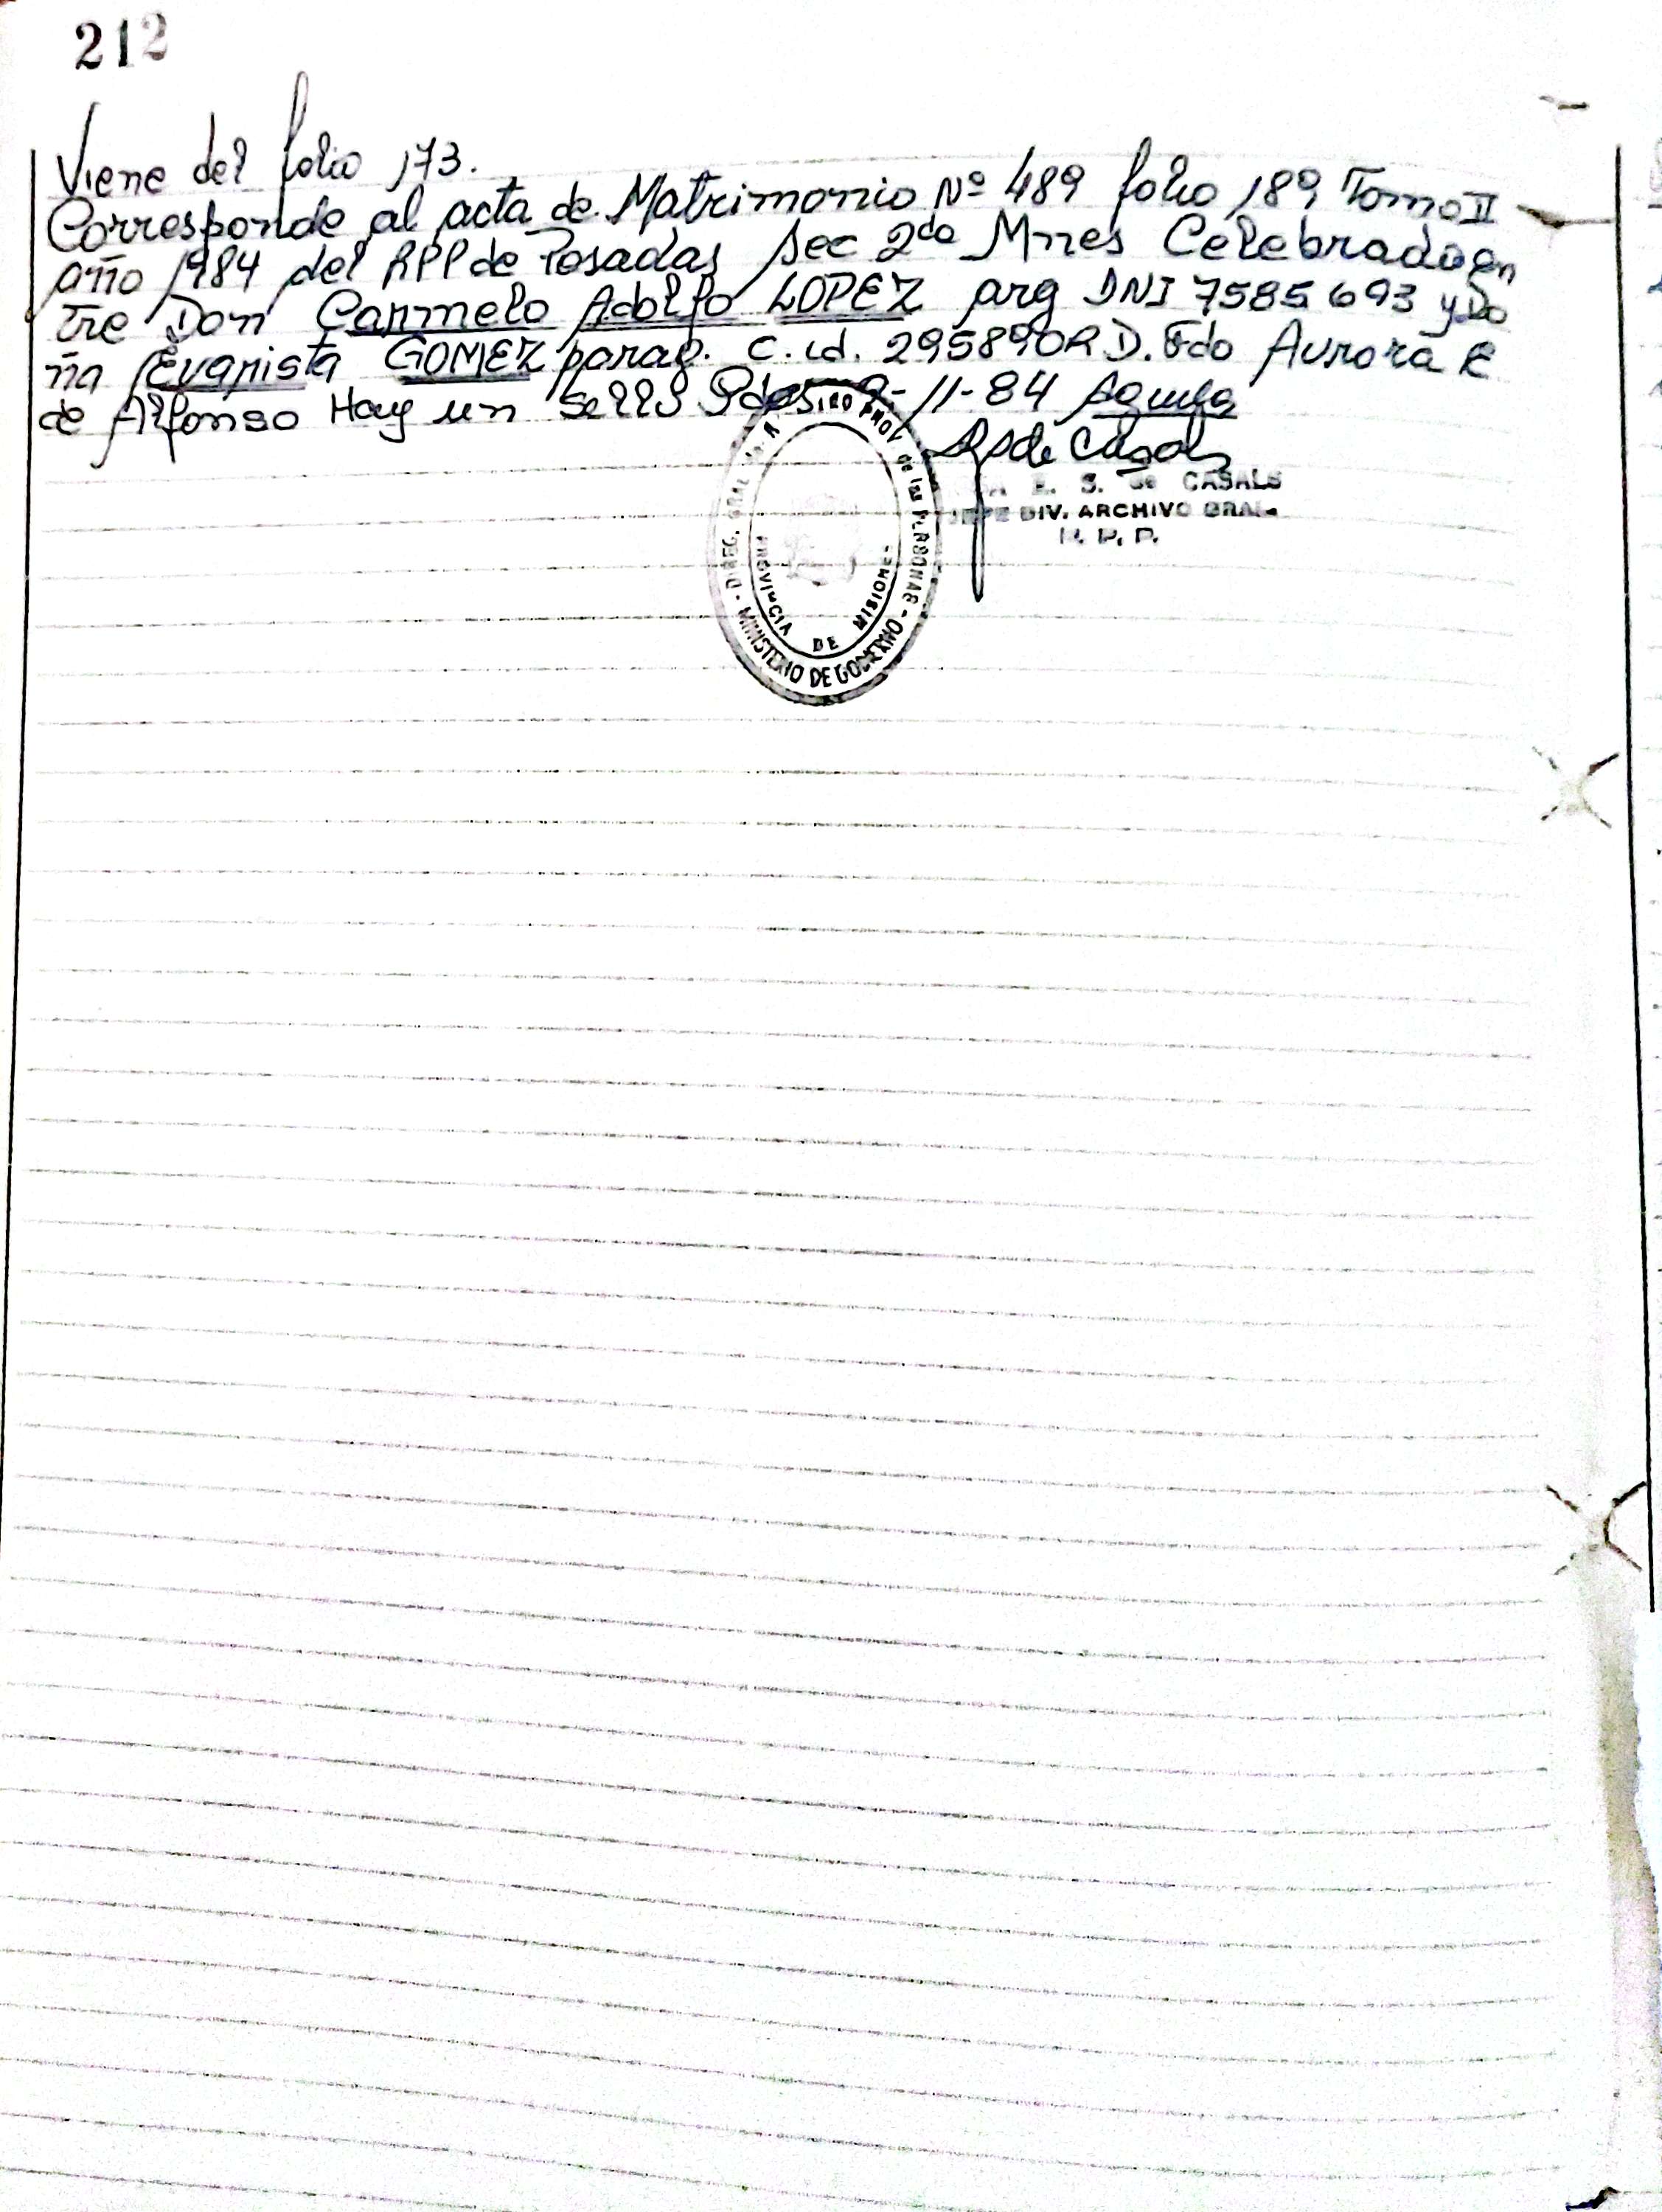 212
Viene del folio 173.
Corresponde al acta de Matrimonio Nº 489 folio 189 Tomo II
año 1984 del RPP de Posadas Sec 2da Mnes Celebrado en
tre Don Carmelo Adolfo LOPEZ arg DNI 7585693 y Do
ña Evarista GOMEZ parag. C. id. 295890 R D. Fdo Aurora R
de Alfonso Hay un sello Pdas 9-11-84
de Casals
S. de CASALS
JEFE DIV. ARCHIVO GRAL.
R. P. P.
DIREC. GRAL PROV de las PERSONAS - MINISTERIO DE GOBIERNO -
PROVINCIA DE MISIONES